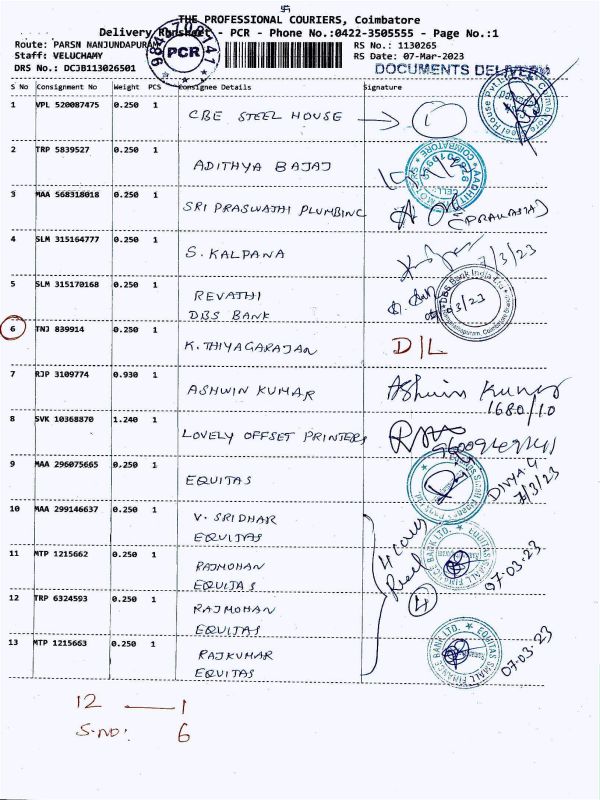 THE PROFESSIONAL COURIERS, Coimbatore
Delivery Runsheet - PCR - Phone No.:0422-3505555 - Page No.:1
Route: PARSN NANJUNDAPURAM
RS No.: 1130265
Staff: VELUCHAMY
RS Date: 07-Mar-2023
DRS No.: DCJB113026501
PCR
DOCUMENTS DELIVERY
S No Consignment No Weight PCS Consignee Details Signature
1 VPL 520087475 0.250 1 CBE STEEL HOUSE
2 TRP 5839527 0.250 1 ADITHYA BAJAJ
3 MAA 568318018 0.250 1 SRI PRASWATHI PLUMBING
4 SLM 315164777 0.250 1 S. KALPANA 7/3/23
5 SLM 315170168 0.250 1 REVATHI
DBS BANK
DBS Bank India Ltd
6 TNJ 839914 0.250 1 K. THIYAGARAJAN D/L
7 RJP 3109774 0.930 1 ASHWIN KUMAR Ashwin Kumar
1680/10
8 SVK 10368870 1.240 1 LOVELY OFFSET PRINTERS
9 MAA 296075665 0.250 1 EQUITAS DIVYA.G
7/3/23
10 MAA 299146637 0.250 1 V. SRIDHAR
EQUITAS
11 MTP 1215662 0.250 1 RAJMOHAN
EQUITAS
07.03.23
12 TRP 6324593 0.250 1 RAJMOHAN
EQUITAS
4
13 MTP 1215663 0.250 1 RAJKUMAR
EQUITAS
EQUITAS SMALL FINANCE BANK LTD.
07.03.23
12 — 1
S.NO: 6